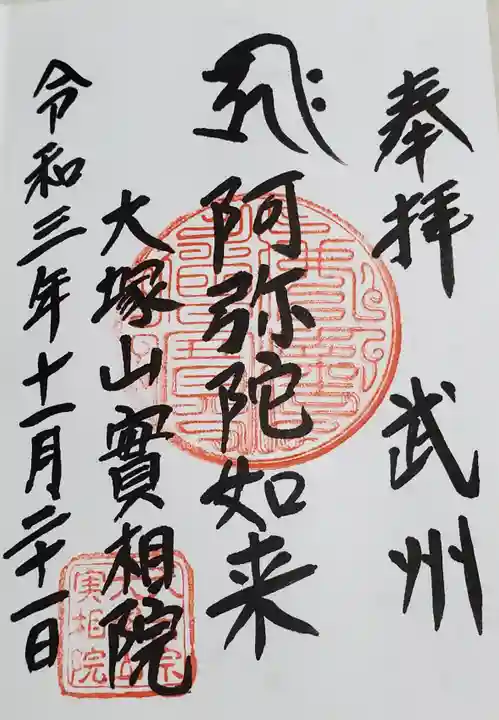 奉拝 武州
阿弥陀如来
大塚山實相院
令和三年十一月二十一日
実相院